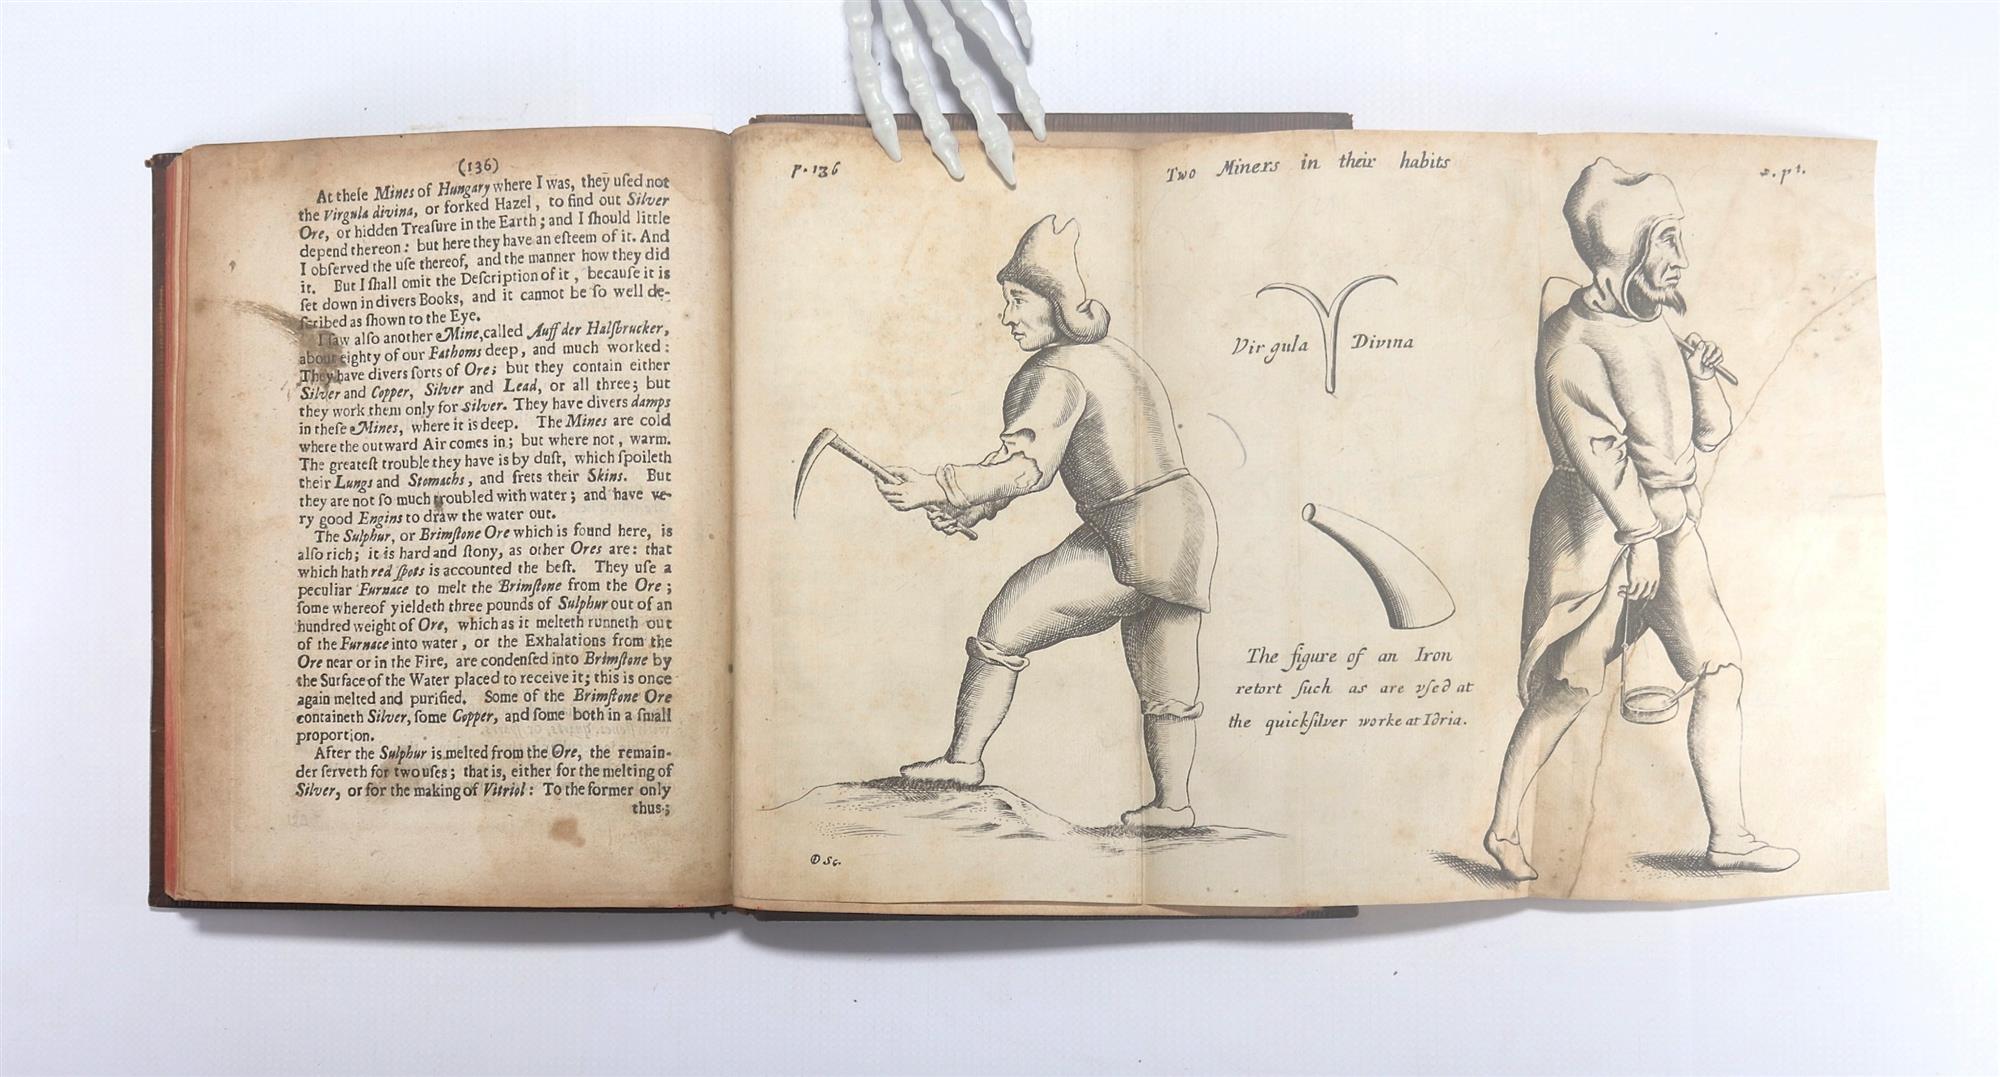 (136)
At theſe Mines of Hungary where I was, they uſed not
the Virgula divina, or forked Hazel, to find out Silver
Ore, or hidden Treaſure in the Earth; and I ſhould little
depend thereon: but here they have an eſteem of it. And
I obſerved the uſe thereof, and the manner how they did
it. But I ſhall omit the Deſcription of it, becauſe it is
ſet down in divers Books, and it cannot be ſo well de-
ſcribed as ſhown to the Eye.
I ſaw alſo another Mine, called Auff der Halſbrucker,
about eighty of our Fathoms deep, and much worked:
They have divers ſorts of Ore; but they contain either
Silver and Copper, Silver and Lead, or all three; but
they work them only for Silver. They have divers damps
in theſe Mines, where it is deep. The Mines are cold
where the outward Air comes in; but where not, warm.
The greateſt trouble they have is by duſt, which ſpoileth
their Lungs and Stomachs, and frets their Skins. But
they are not ſo much troubled with water; and have ve-
ry good Engins to draw the water out.
The Sulphur, or Brimſtone Ore which is found here, is
alſo rich; it is hard and ſtony, as other Ores are: that
which hath red ſpots is accounted the beſt. They uſe a
peculiar Furnace to melt the Brimſtone from the Ore;
ſome whereof yieldeth three pounds of Sulphur out of an
hundred weight of Ore, which as it melteth runneth out
of the Furnace into water, or the Exhalations from the
Ore near or in the Fire, are condenſed into Brimſtone by
the Surface of the Water placed to receive it; this is once
again melted and purified. Some of the Brimſtone Ore
containeth Silver, ſome Copper, and ſome both in a ſmall
proportion.
After the Sulphur is melted from the Ore, the remain-
der ſerveth for two uſes; that is, either for the melting of
Silver, or for the making of Vitriol: To the former only
thus;
p. 136
Two Miners in their habits
2. pt.
Virgula Divina
The figure of an Iron
retort ſuch as are vſed at
the quickſilver worke at Idria.
D Sc.